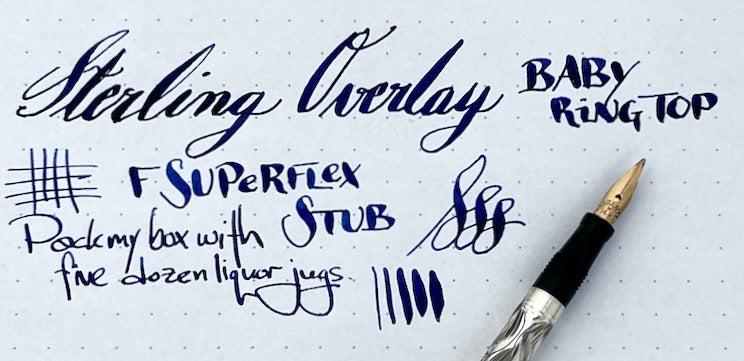 Sterling Overlay
BABY
RiNG TOP
F SUPeRFLeX
STUB
Pack my box with
five dozen liquor jugs.